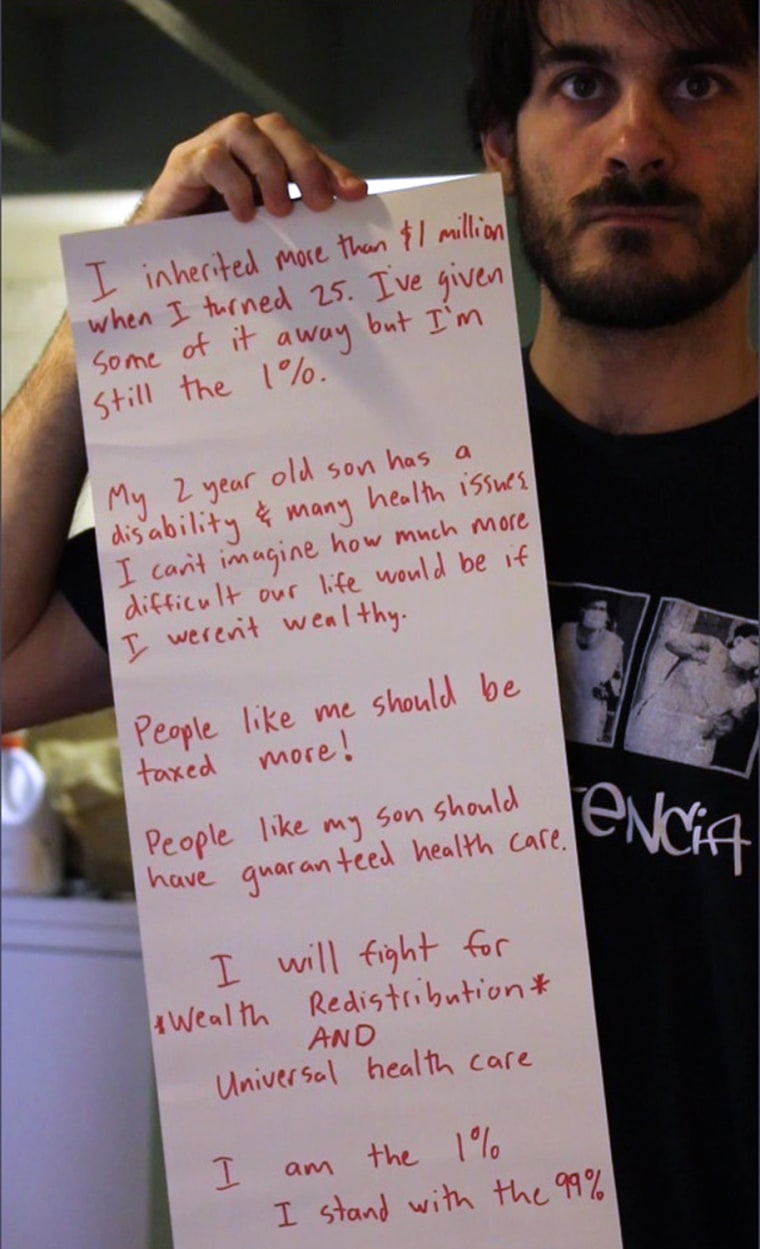 I inherited more than $1 million
when I turned 25. I've given
some of it away but I'm
still the 1%.
My 2 year old son has a
disability & many health issues.
I can't imagine how much more
difficult our life would be if
I weren't wealthy.
People like me should be
taxed more!
People like my son should
have guaranteed health care.
I will fight for
*Wealth Redistribution*
AND
Universal health care
I am the 1%
I stand with the 99%
ENCiA